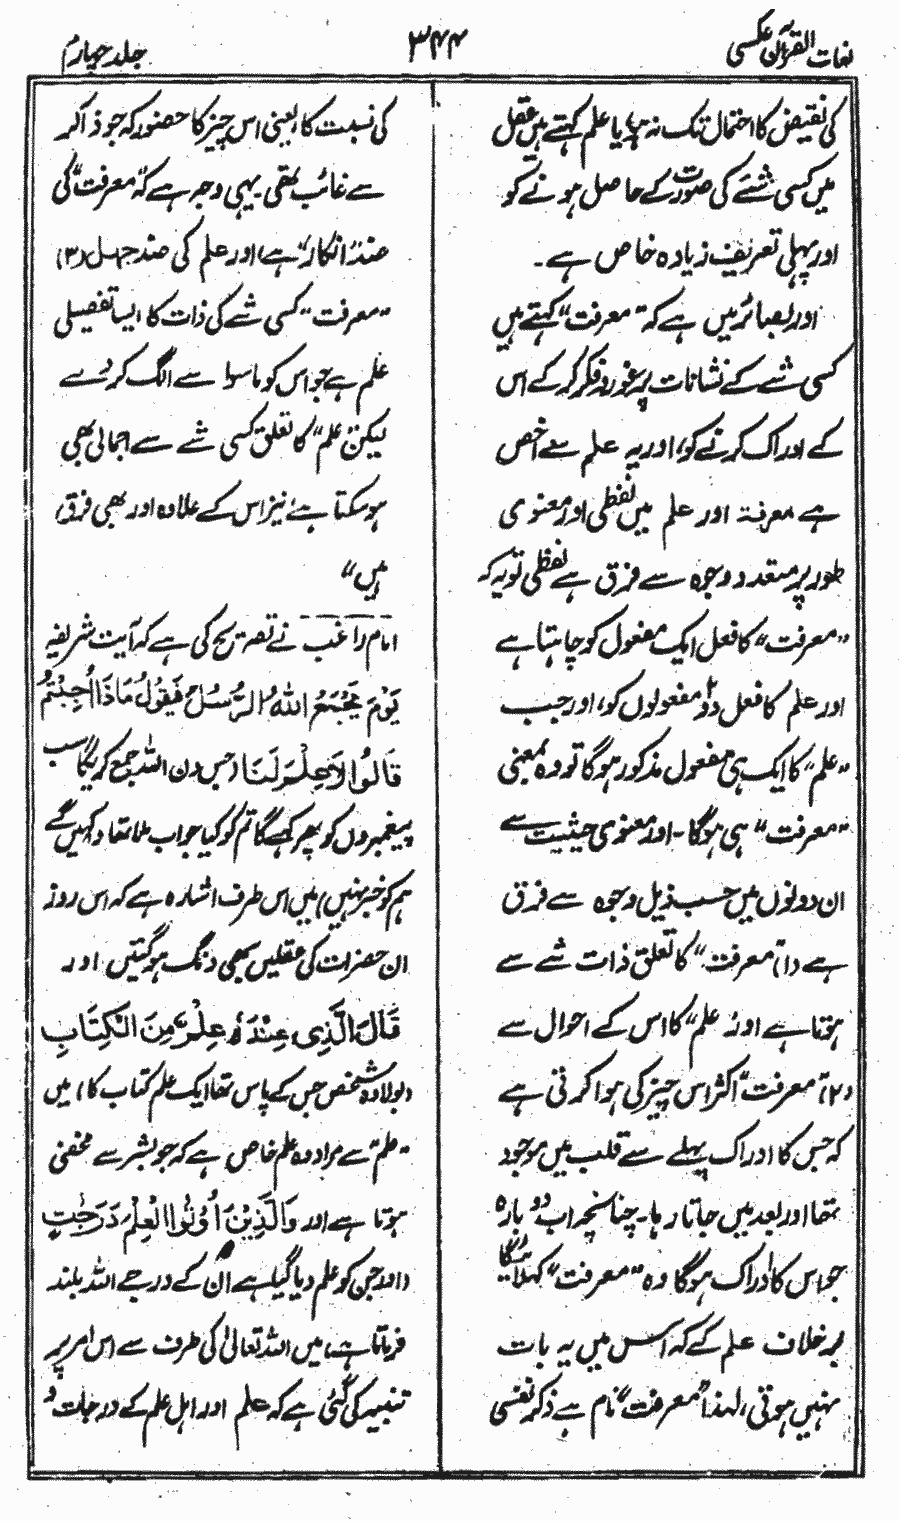 لغات القرآن عکسی
۳۴۴
جلد چہارم
کی نقیض کا احتمال تک نہ رہے یا علم کہتے ہیں عقل
میں کسی شئے کی صورت کے حاصل ہونے کو
اور پہلی تعریف زیادہ خاص ہے۔
اور بصائر میں ہے کہ "معرفت" کہتے ہیں
کسی شے کے نشانات پر غور و فکر کر کے اس
کے ادراک کرنے کو، اور یہ علم سے اخص
ہے معرفۃ اور علم میں لفظی اور معنوی
طور پر متعدد وجوہ سے فرق ہے لفظی تو یہ کہ
"معرفت" کا فعل ایک مفعول کو چاہتا ہے
اور علم کا فعل دو مفعولوں کو، اور جب
"علم" کا ایک ہی مفعول مذکور ہوگا تو وہ بمعنی
"معرفت" ہی ہوگا۔ اور معنوی حیثیت سے
ان دونوں میں حسب ذیل وجوہ سے فرق
ہے (۱) "معرفت" کا تعلق ذات شے سے
ہوتا ہے اور "علم" کا اس کے احوال سے
(۲) "معرفت" اکثر اس چیز کی ہوا کرتی ہے
کہ جس کا ادراک پہلے سے قلب میں موجود
تھا اور بعد میں جاتا رہا۔ چنانچہ اب دوبارہ
جو اس کا ادراک ہوگا وہ "معرفت" کہلائیگا
برخلاف علم کے کہ اس میں یہ بات
نہیں ہوتی، لہذا "معرفت" نام ہے ذکر نفسی
کی نسبت کا یعنی اس چیز کا حضور کہ جو ذاکر
سے غائب تھی یہی وجہ ہے کہ "معرفت" کی
ضد "انکار" ہے، اور علم کی ضد جہل (۳)
"معرفت" کسی شے کی ذات کا ایسا تفصیلی
علم ہے جو اس کو ماسوا سے الگ کر دے
لیکن "علم" کا تعلق کسی شے سے اجمالی بھی
ہوسکتا ہے نیز اس کے علاوہ اور بھی فرق
ہیں"
امام راغب نے تصریح کی ہے کہ آیت شریفہ
يَوْمَ يَجْمَعُ اللهُ الرُّسُلَ فَيَقُولُ مَاذَا أُجِبْتُمْ
قَالُوا لَا عِلْمَ لَنَا (جس دن اللہ جمع کریگا سب
پیغمبروں کو پھر کہے گا تم کو کیا جواب ملا تھا وہ کہیں گے
ہم کو خبر نہیں) میں اس طرف اشارہ ہے کہ اس روز
ان حضرات کی عقلیں بھی دنگ ہوگئیں اور
قَالَ الَّذِي عِنْدَهُ عِلْمٌ مِنَ الْكِتَابِ
(بولا وہ شخص جس کے پاس تھا ایک علم کتاب کا) میں
"علم" سے مراد وہ علم خاص ہے کہ جو بشر سے مخفی
ہوتا ہے اور وَالَّذِيْنَ أُوْتُوا الْعِلْمَ دَرَجٰتٍ
(اور جن کو علم دیا گیا ہے ان کے درجے اللہ بلند
فرماتا ہے) میں اللہ تعالیٰ کی طرف سے اس امر پر
تنبیہ کی گئی ہے کہ علم اور اہل علم کے درجات و